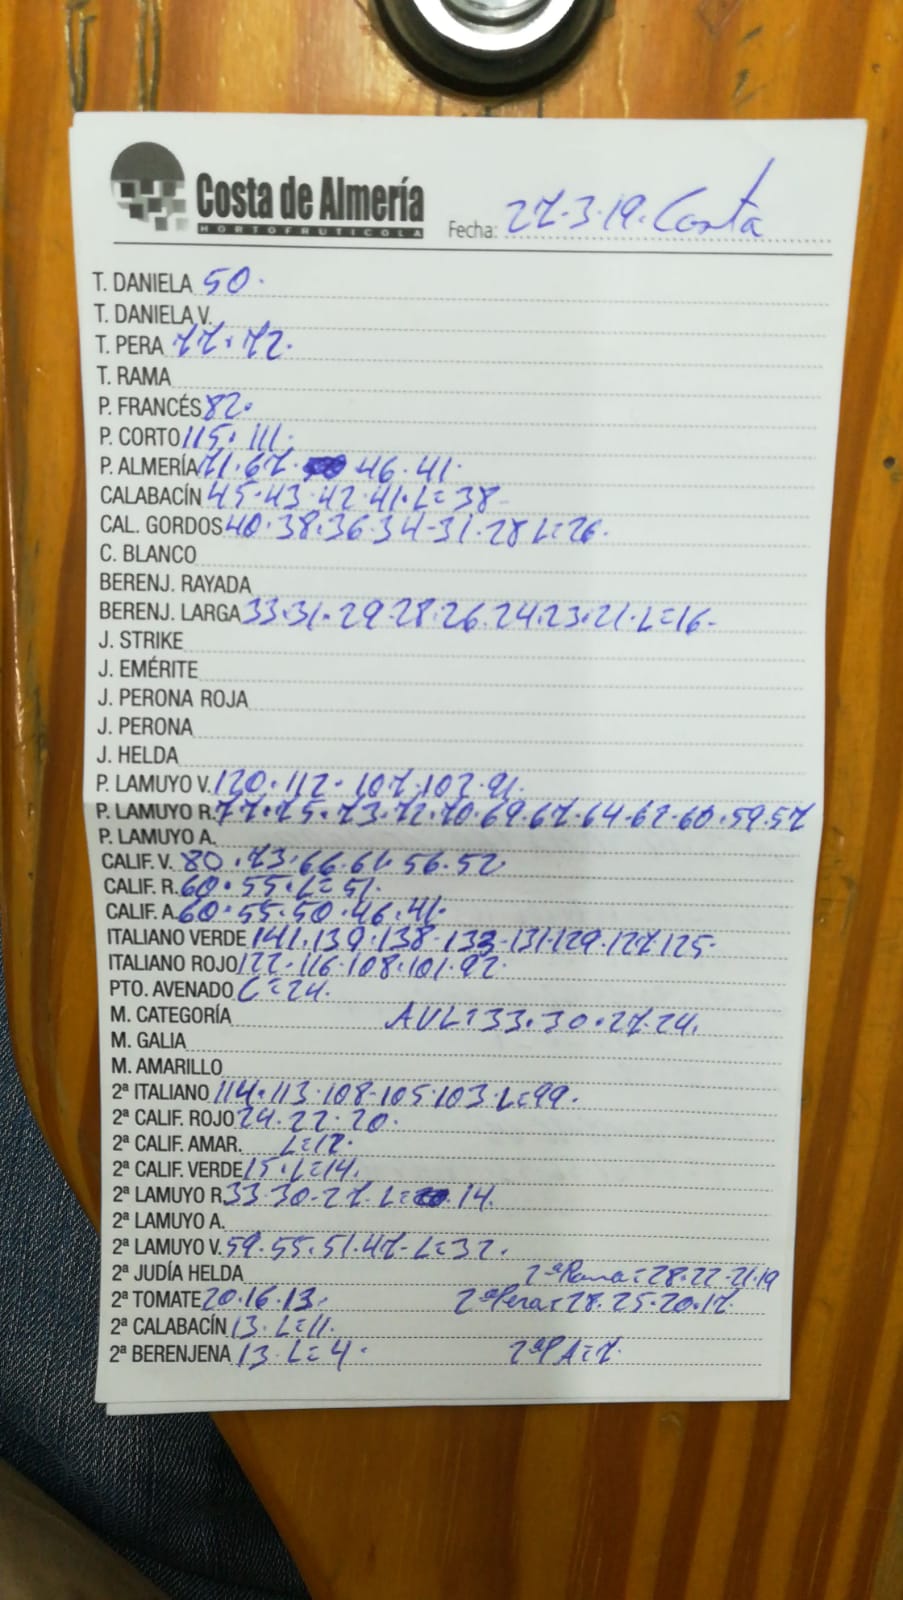 Costa de Almería
HORTOFRUTICOLA
Fecha: 27.3.19. Costa
T. DANIELA 50.
T. DANELA V.
T. PERA 77.72.
T. RAMA
P. FRANCÉS 82.
P. CORTO 115.111.
P. ALMERÍA 71.67. 46.41.
CALABACÍN 45.43.42.41.L=38-
CAL. GORDOS 40.38.36.34-31.28 L=26.
C. BLANCO
BERENJ. RAYADA
BERENJ. LARGA 33.31.29-28.26.24.23.21.L=16-
J. STRIKE
J. EMÉRITE
J. PERONA ROJA
J. PERONA
J. HELDA
P. LAMUYO V. 120.112-107.103.91.
P. LAMUYO R. 77.75.73.72.70.69-67-64-62-60.59.57
P. LAMUYO A.
CALIF. V. 80.73.66.61.56.52
CALIF. R. 60.55.L=51.
CALIF. A. 60.55.50.46.41.
ITALIANO VERDE 141.139.138-133-131.129.127.125-
ITALIANO ROJO 122-116-108.101.92.
PTO. AVENADO C=24.
M. CATEGORÍA AVL=33.30.27.24.
M. GALIA
M. AMARILLO
2ª ITALIANO 114.113.108-105.103.L=99.
2ª CALIF. ROJO 24.22.20.
2ª CALIF. AMAR. L=12.
2ª CALIF. VERDE 15.L=14.
2ª LAMUYO R. 33.30-27.L= 14.
2ª LAMUYO A.
2ª LAMUYO V. 59.55.51.47-L=32.
2ª JUDÍA HELDA 2ªRama=28.22-21.19
2ª TOMATE 20.16.13. 2ªPera=28.25.20.17.
2ª CALABACÍN 13.L=11.
2ª BERENJENA 13.L=4. 2ªPA=7.